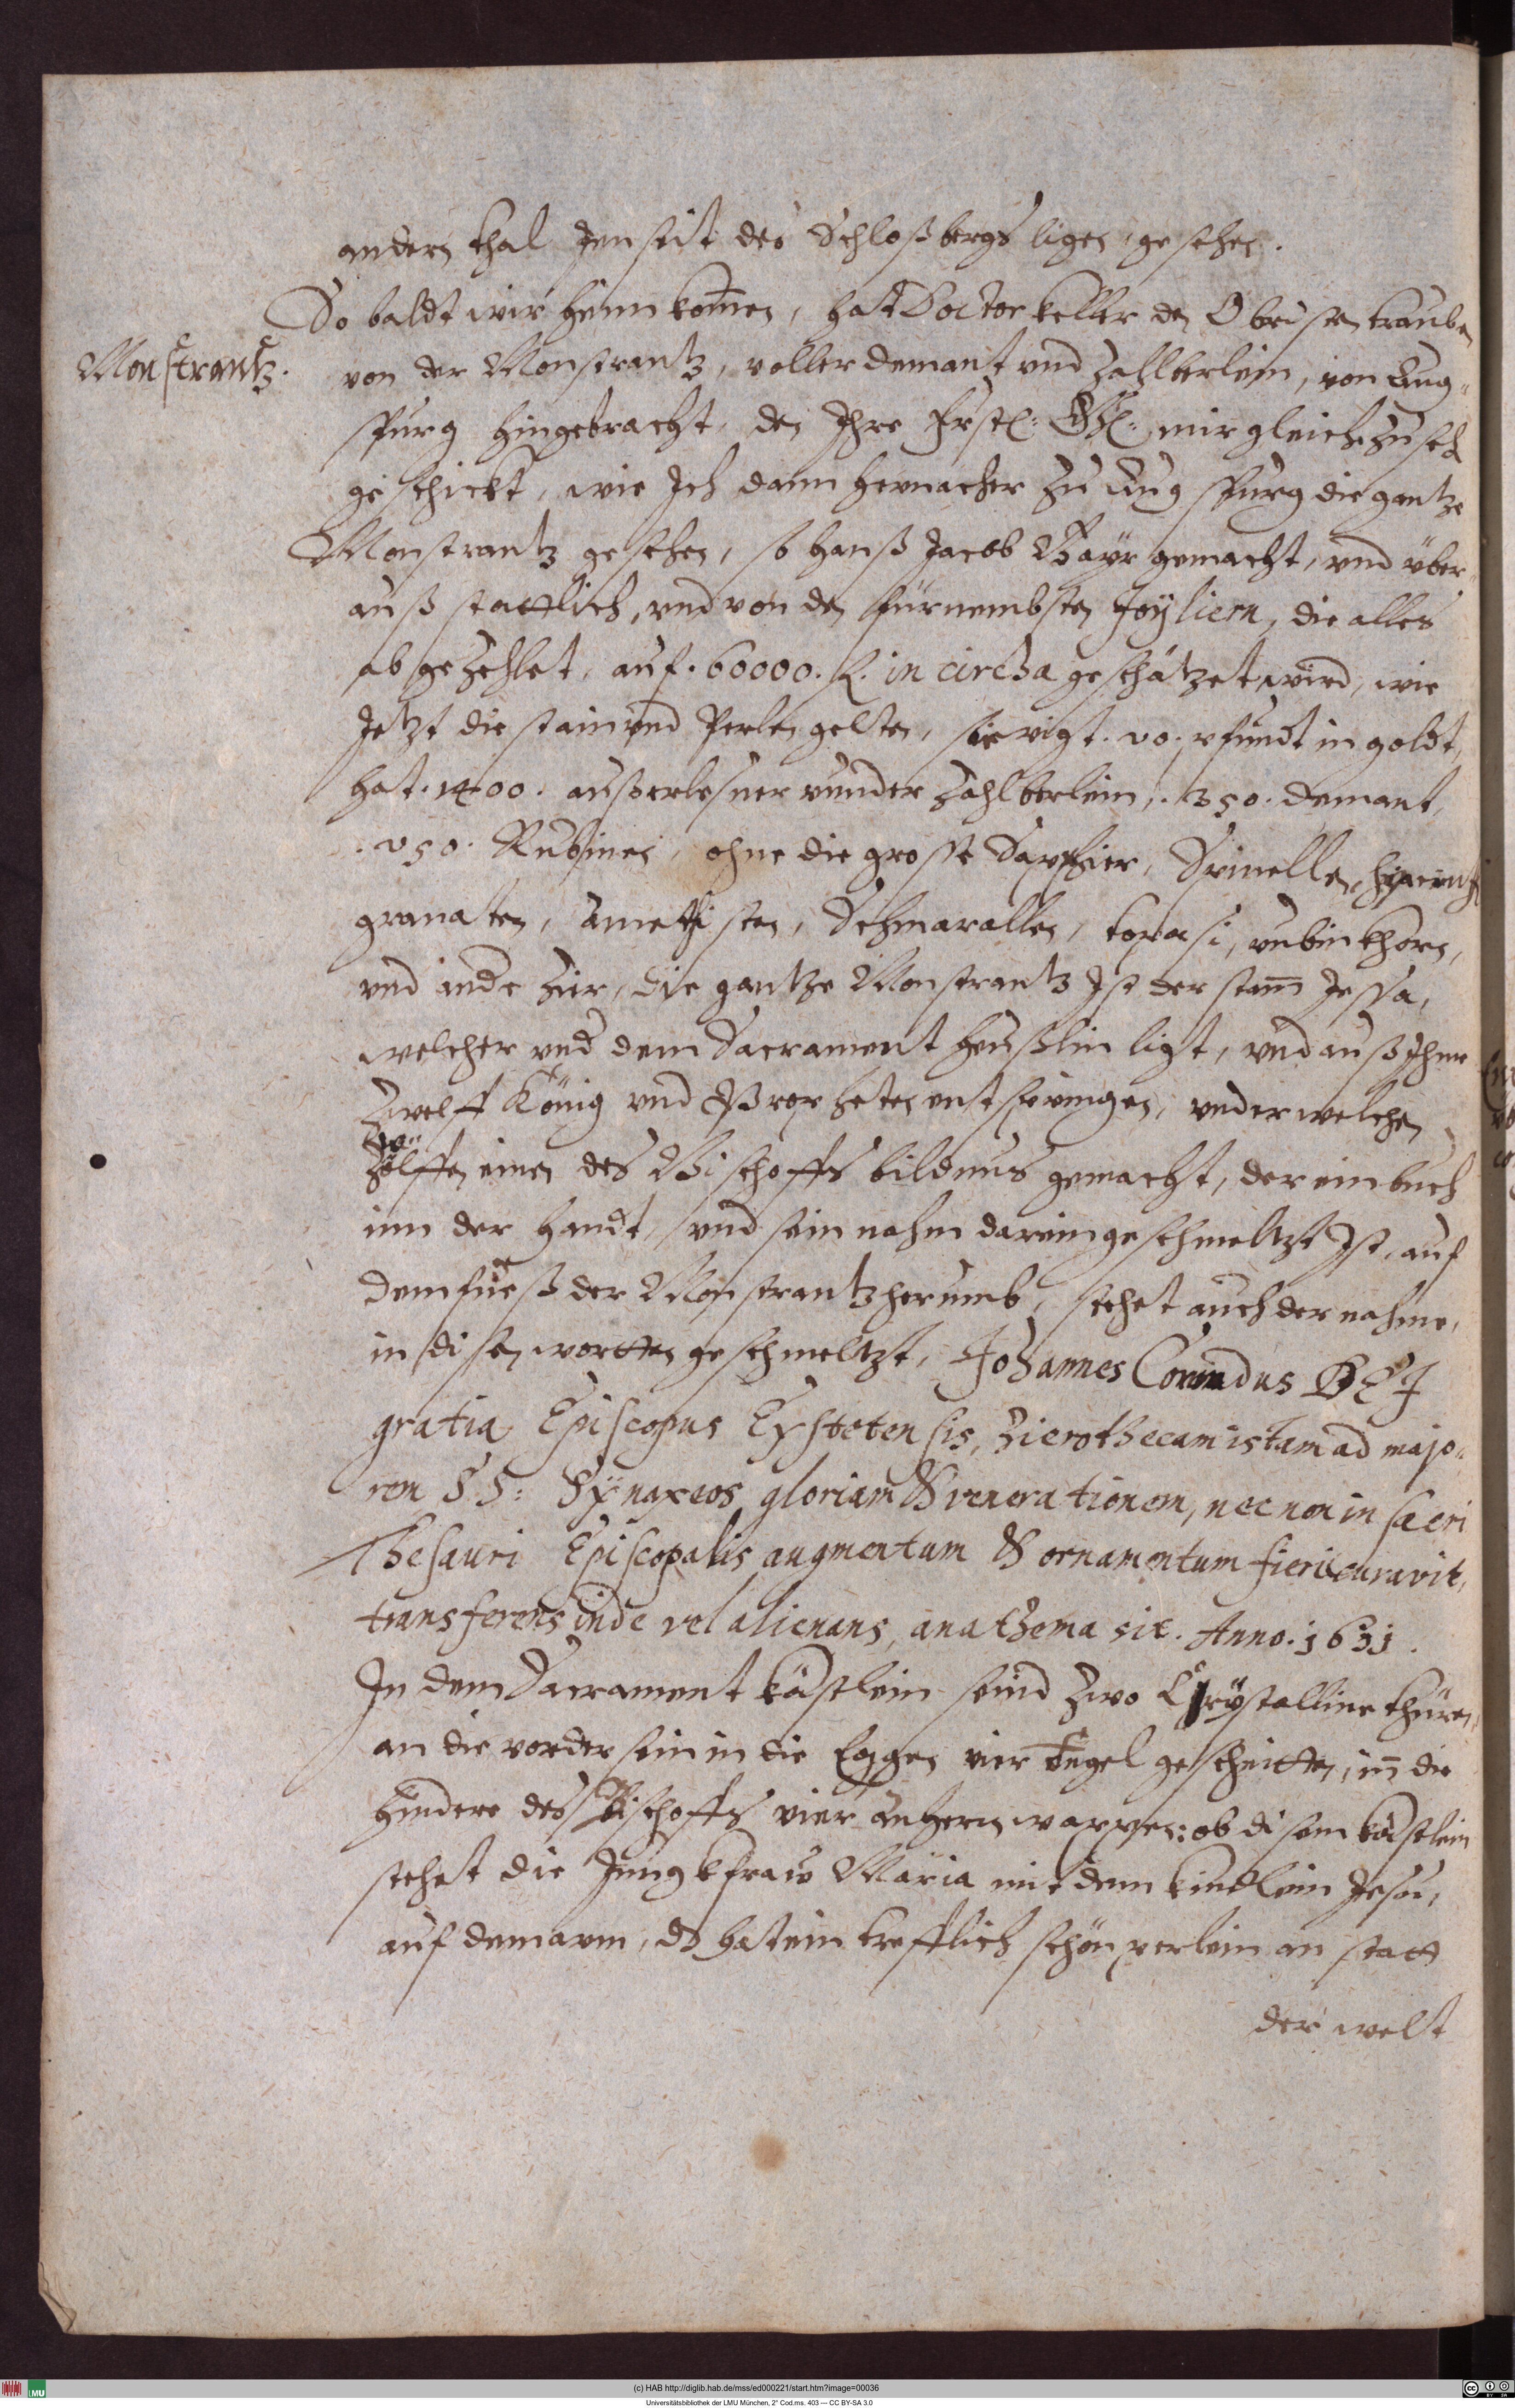 andern thal Jenseit des Schloßbergs ligen, gesehen.
So baldt wir heim komen, hat Doctor keller den Obristen trauben
Monstrantz.
von der Monstrantz, voller demant und Zahlberlein, von Aug-
spurg hingebracht, den Ihre Frstl: Gl: mir gleich zu seh
geschickt, wie Ich dann hernacher zu Augspurg die gantze
Monstrantz gesehen, so hanß Jacob Bayr gemacht, und über-
auß stattlich, und von den fürnembsten Joÿliern, die alles
abgezehlet, auf. 60000. fl. in circha geschätzet wird, wie
Jetzt die stain und Perlen gelten, sie wigt. 20. pfundt in goldt,
hat. 1400. außerlesner runder Zahlberlein,. 350. demant,
. 250. Rubinen, ohne die grosse Sapphier, Spinellen,
granaten, Amethisten, Schmarallen, topasi, rubinkhorn,
und ande Zier, die gantze Monstrantz Ist der stam Jessa,
welcher und dem Sacrament heußlin ligt, und auß Ihme
Zwelff König und Propheten entspringen, under welchen
Zwölfften einen des Bischoffs bildnus gemacht, der ein buch
inn der handt, und sein nahm darein geschmeltzt Ist, auf
dem fueß der Monstrantz herumb, stehet auch der nahme,
in disen wortten geschmeltzt, Johannes Conradus DEI
gratia Episcopus Eystetensis, hierothecam istam ad majo-
rem SS: Sÿnaxeos gloriam & venerationem, nec non in sacri
Thesauri Episcopalis augmentum & ornamentum fieri curavit,
transferens inde vel alienans, anathema sit. Anno. 1611.
In dem Sacrament kästlein seind zwo Crystalline thüren,
an die vorder sein in die Eggen vier Engel geschnitten, in die
hindere des Bischoffs vier anhern wappen: ob disem kästlein
stehet die Jungkfraw Maria mit dem kindlein Jesu,
auf dem arm, ds hat ein trefflich schön perlein an statt
der welt
(c) HAB http://diglib.hab.de/mss/ed000221/start.htm?image=00036
Universitätsbibliothek der LMU München, 2° Cod.ms. 403 — CC BY-SA 3.0